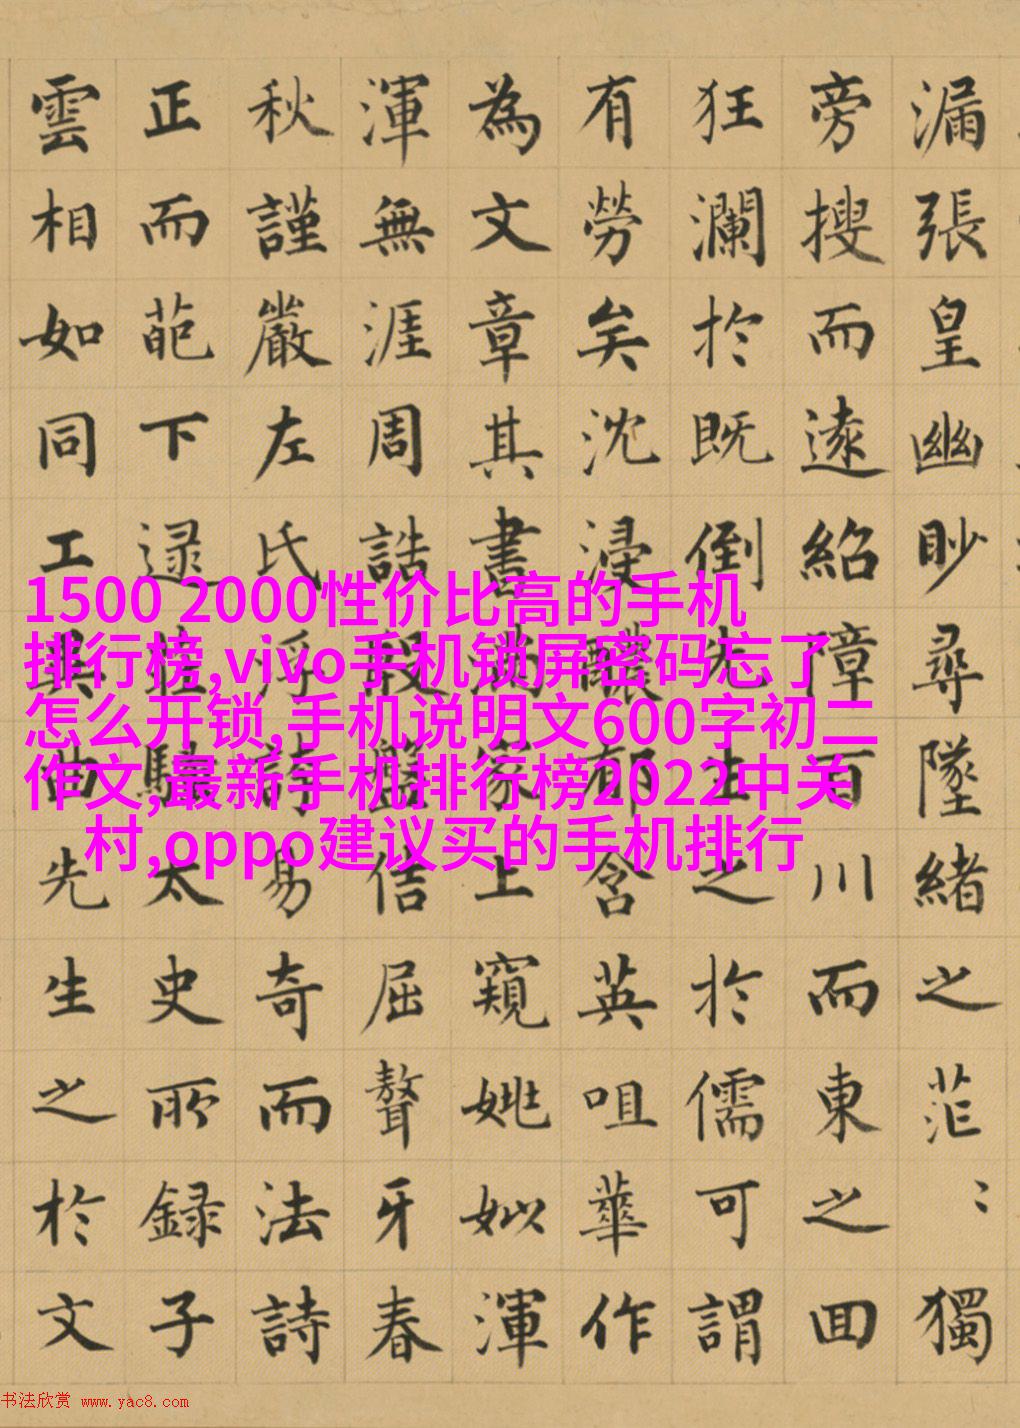 漏張皇幽眇尋墜緒之茫〻獨
旁搜而遠紹障百川而東之回
狂瀾於既倒先生之於儒可謂
有勞矣沈浸醲郁含英咀華作
為文章其書滿家上窺姚姒渾
渾無涯周誥殷盤佶屈聱牙春
秋謹嚴左氏浮誇易奇而法詩
正而葩下逮莊騷太史所録子
雲相如同工異曲先生之於文
1500 2000性价比高的手机
排行榜,vivo手机锁屏密码忘了
怎么开锁,手机说明文600字初二
作文,最新手机排行榜2022中关
村,oppo建议买的手机排行
书法欣赏 www.yac8.com